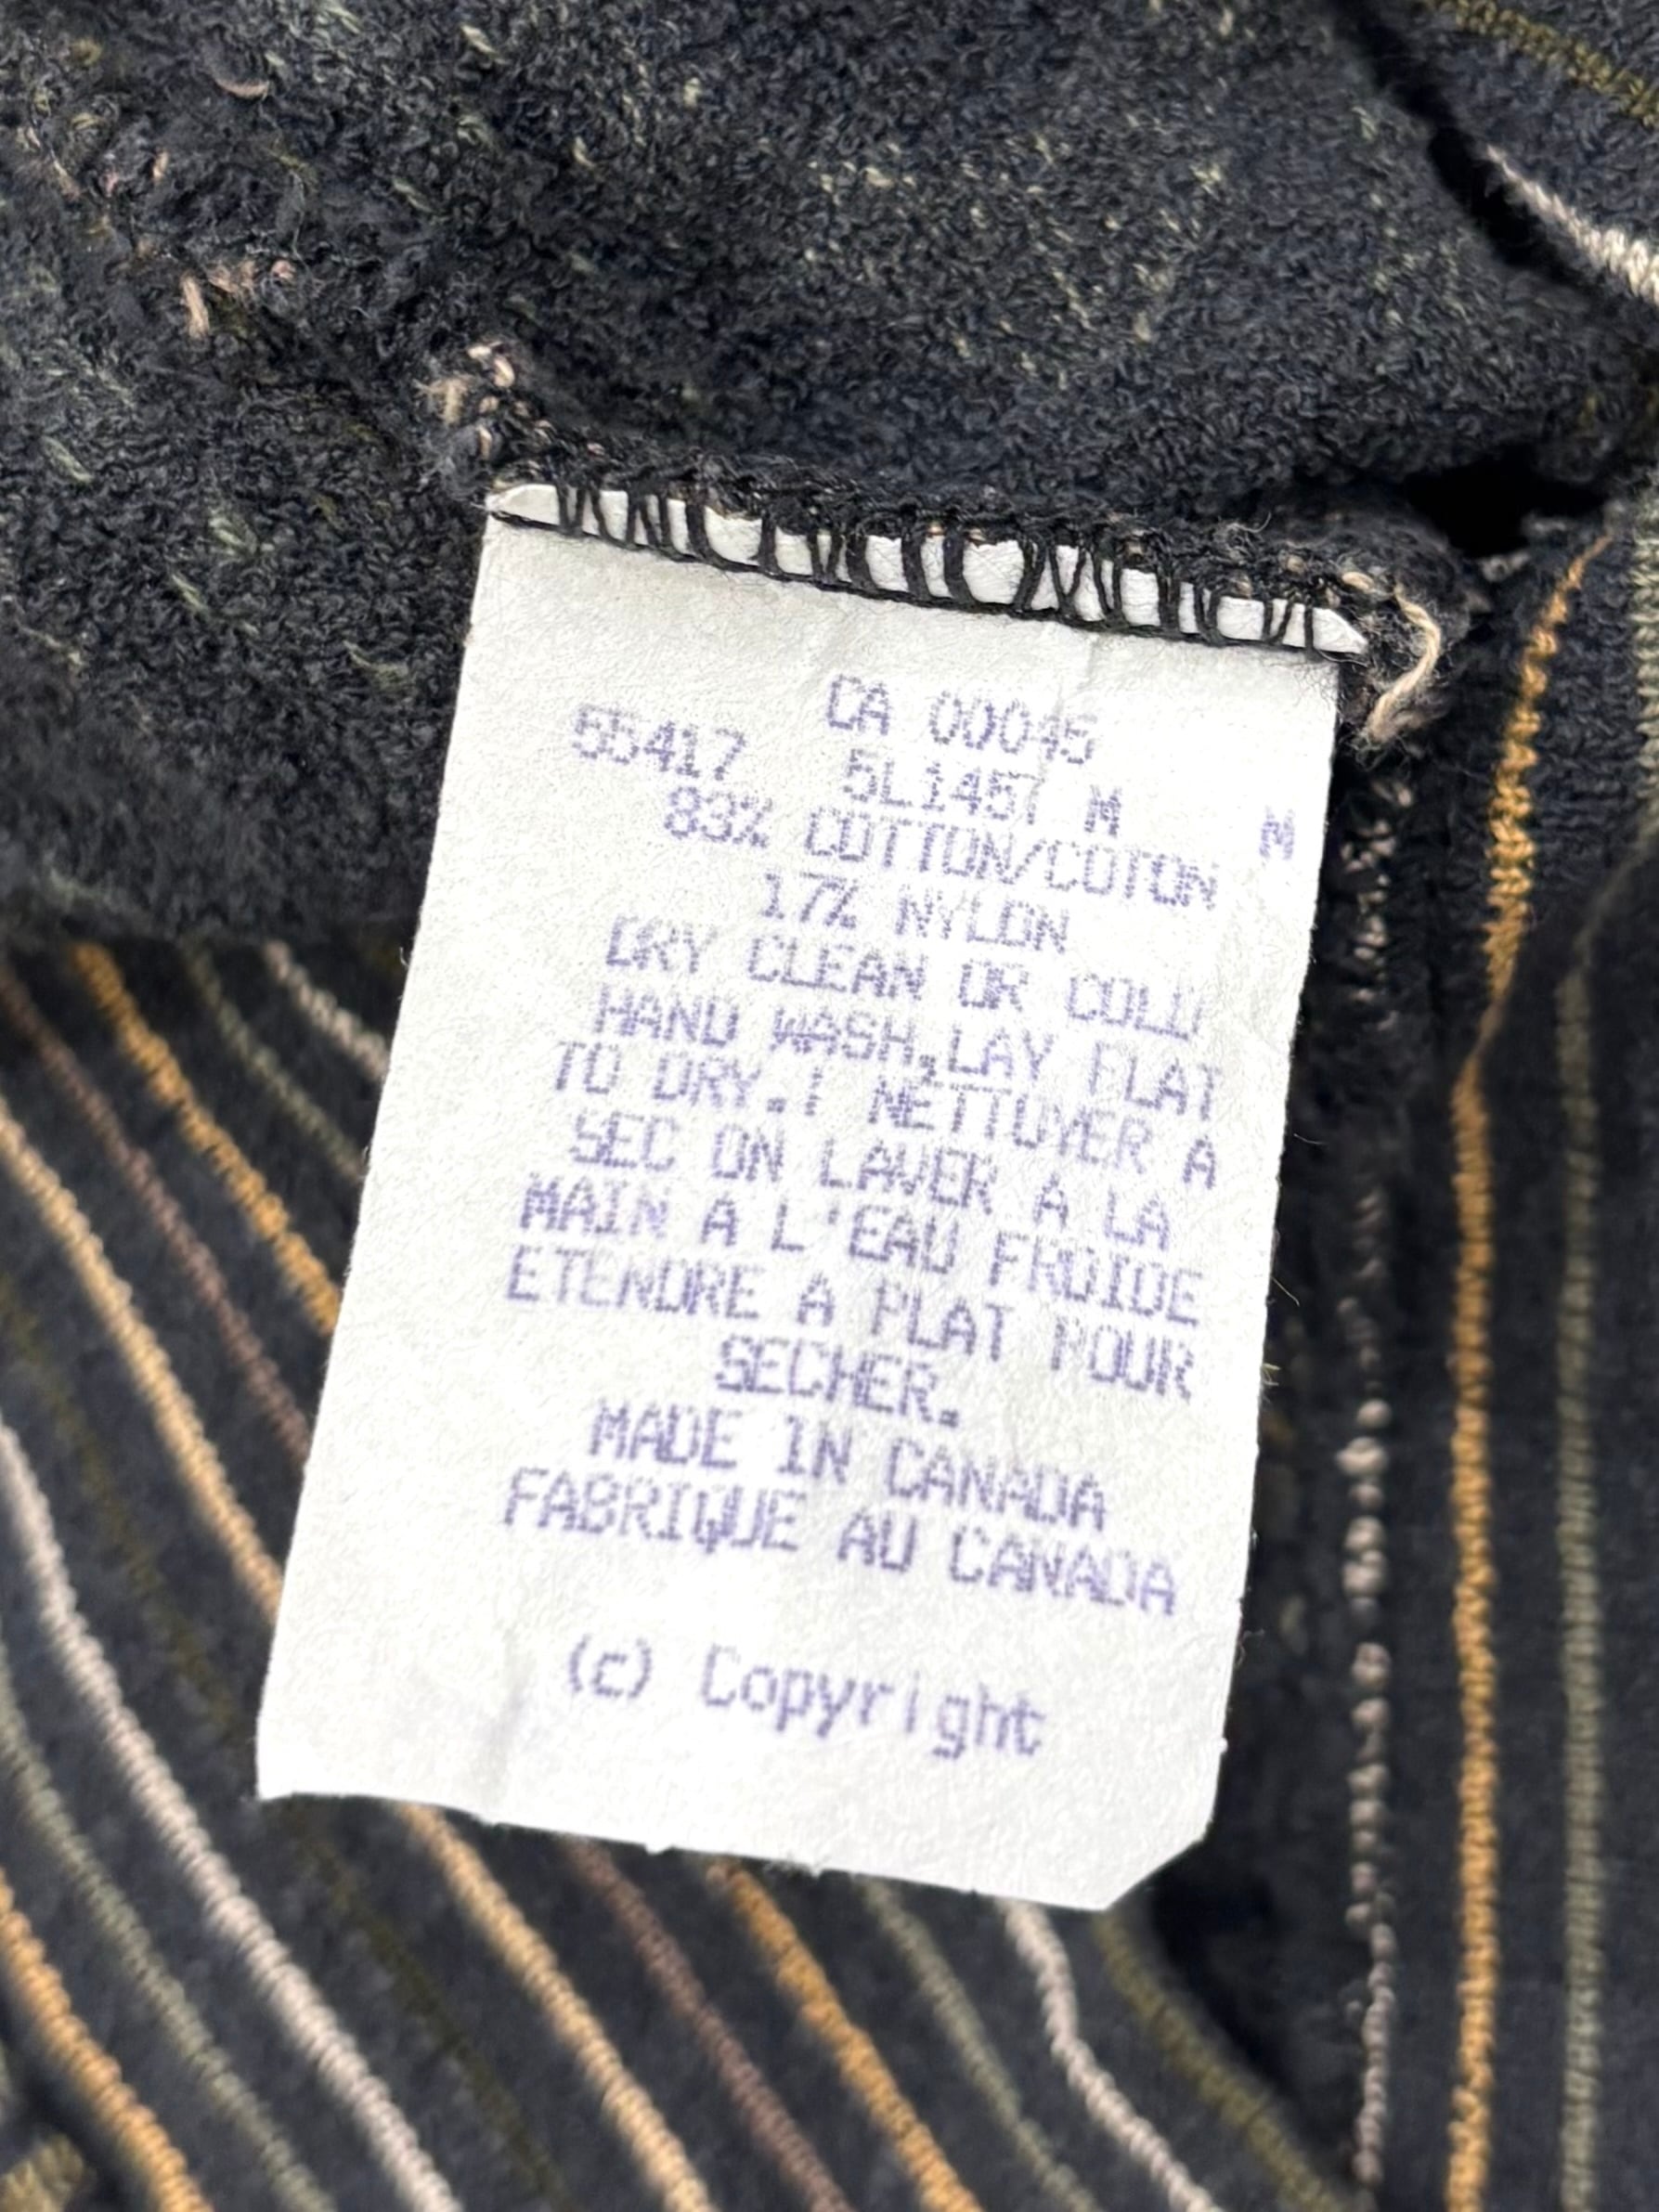 CA 00045
55417 5L1457 M M
83% COTTON/COTON
17% NYLON
DRY CLEAN OR COLD
HAND WASH,LAY FLAT
TO DRY.! NETTOYER A
SEC ON LAVER A LA
MAIN A L'EAU FROIDE
ETENDRE A PLAT POUR
SECHER.
MADE IN CANADA
FABRIQUE AU CANADA
(c) Copyright